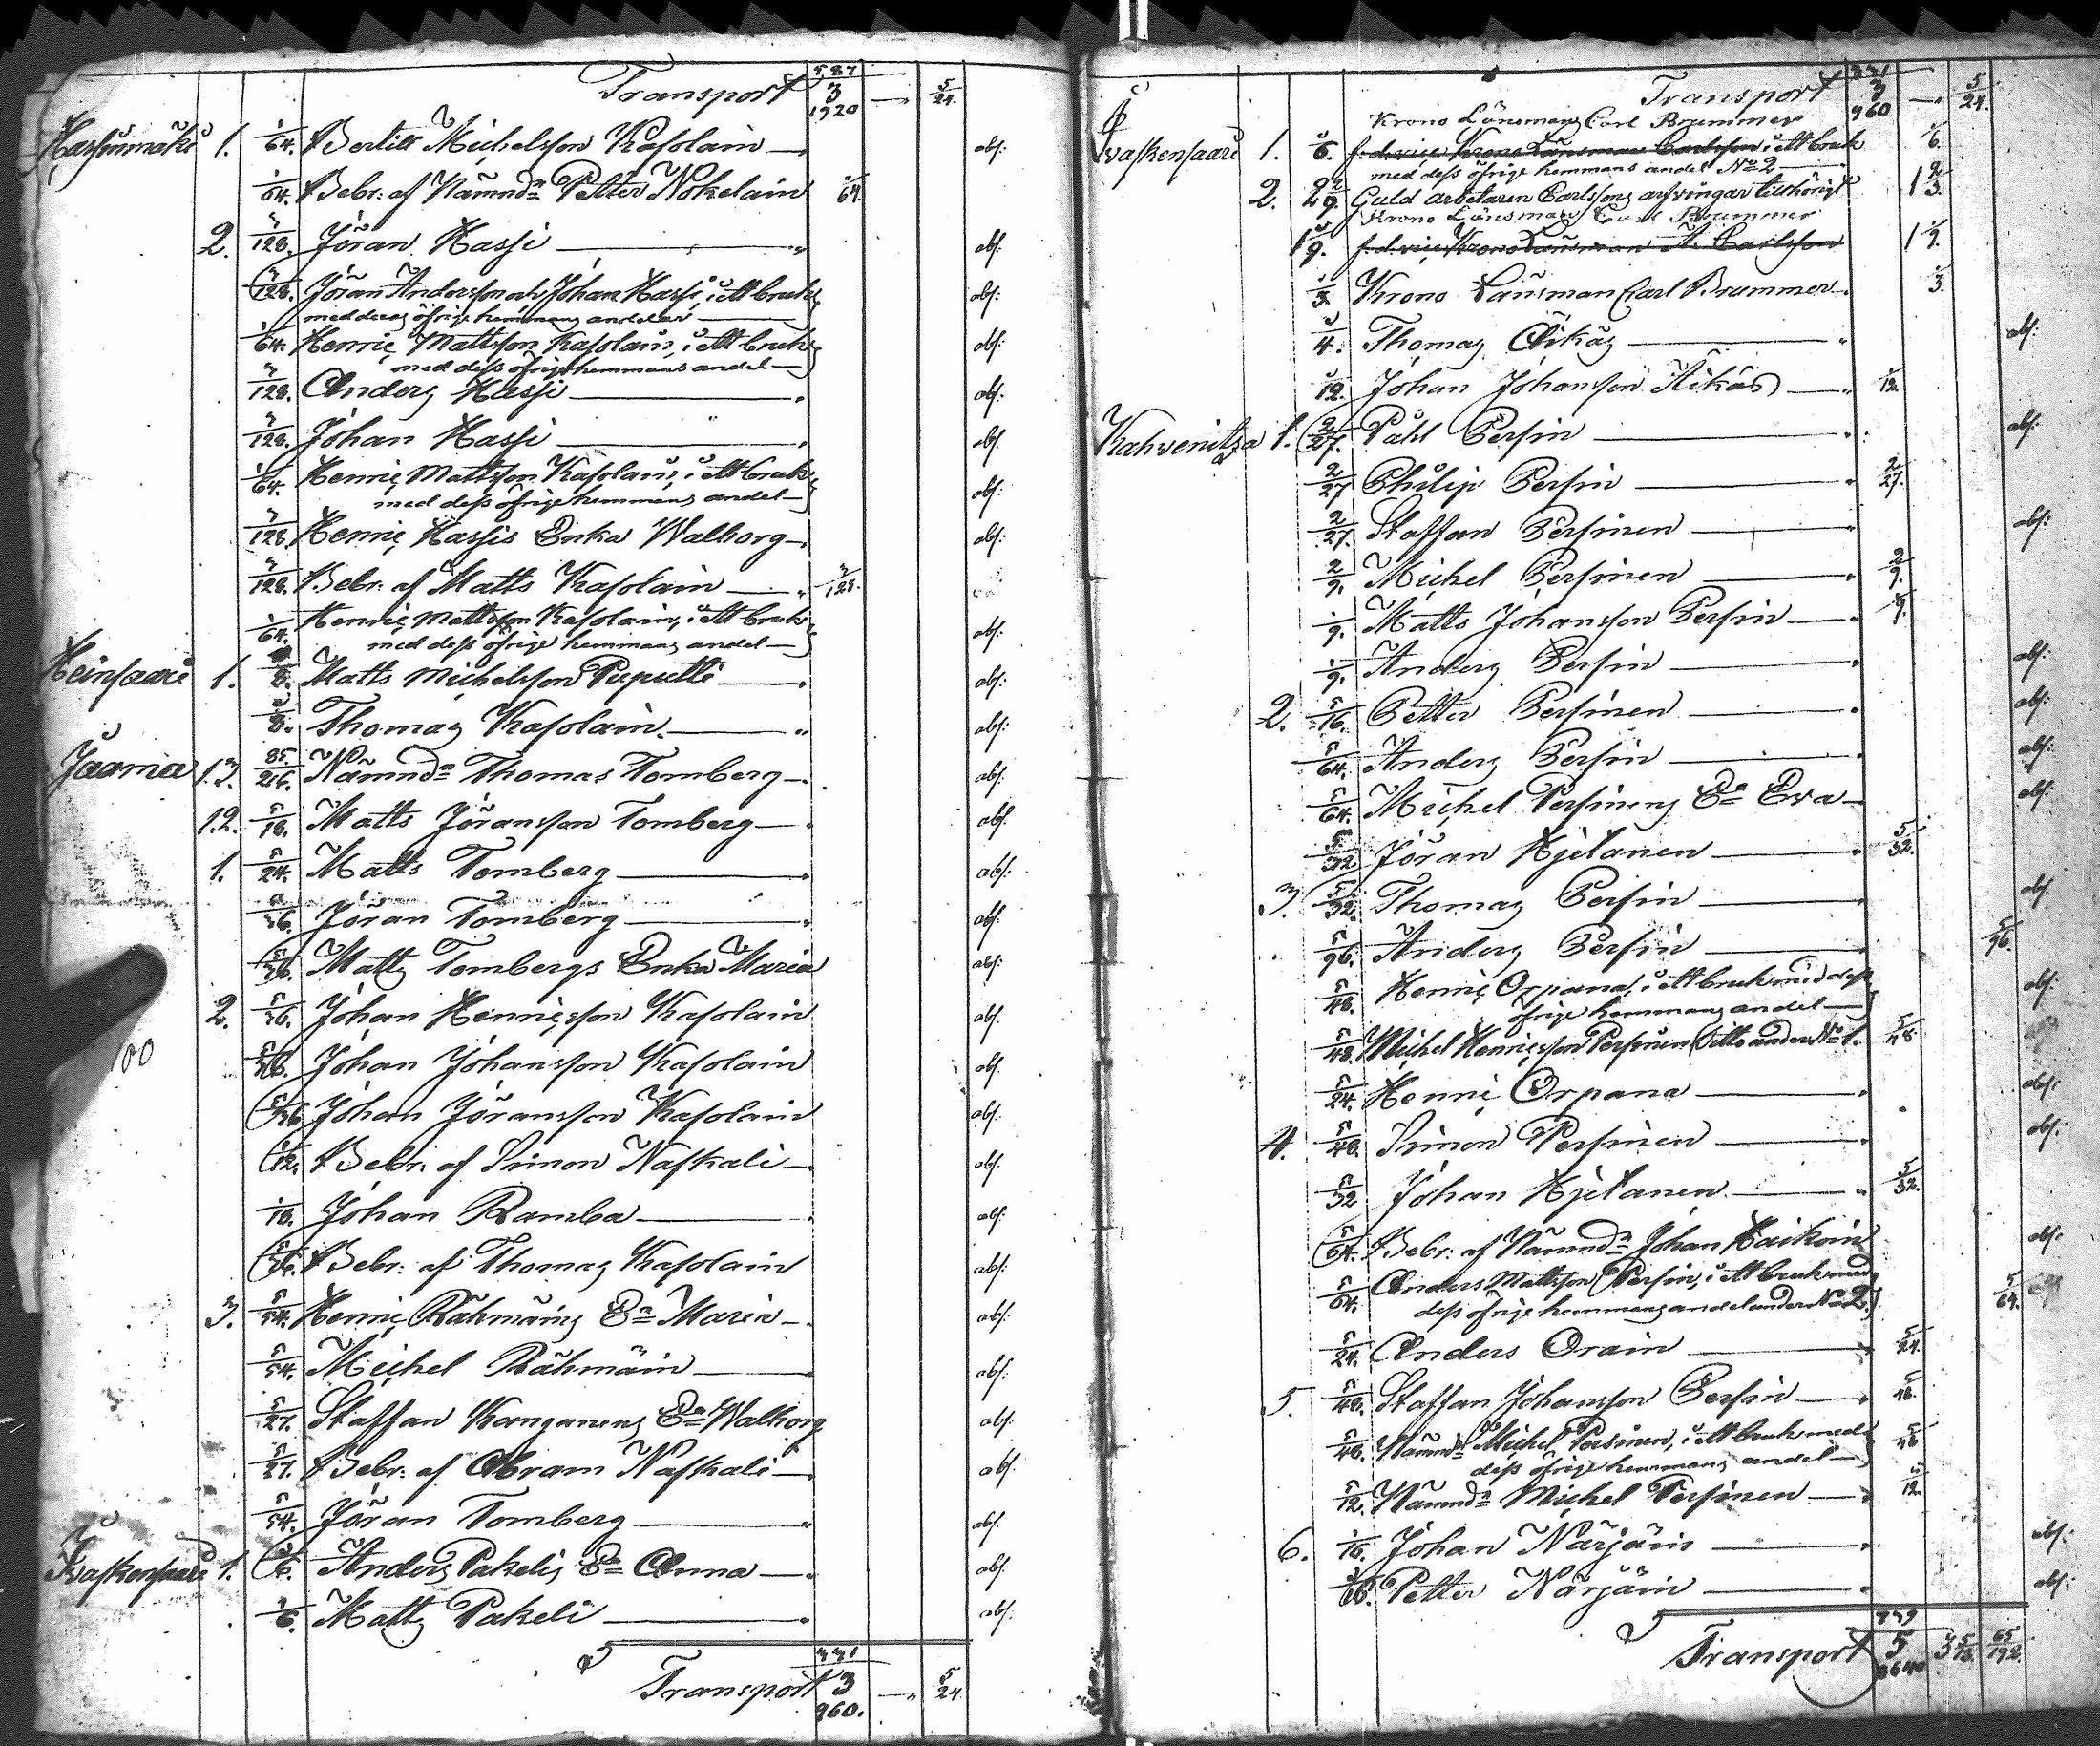 Transport 587/1920 3 — 5/24.
1. 1/64. Bertill Michelsson Kasolain — abs:
1/64. Bebr: af Nämnd:n Petter Nokelain 1/64.
2. 3/128. Jöran Hassi — abs:
3/128. Jöran Andersson och Johan Hassi, i ett bruk
med deras öfrige hemmans andelar — abs:
1/64. Henric Mattsson Kasolain, i ett bruk
med dess öfrige hemmans andel — abs:
3/128. Anders Hassi — abs:
3/128. Johan Hassi — abs:
1/64. Henric Mattsson Kasolain, i ett bruk
med dess öfrige hemmans andel — abs:
3/128. Henric Hassis Enka Walborg — abs:
3/128. Bebr: af Matts Kasolain — 3/128.
1/64. Henric Mattsson Kasolain, i ett bruk
med dess öfrige hemmans andel — abs:
Heinsaari 1. Matts Michelsson Puputti — abs:
Thomas Kasolain. — abs:
Jaama 1.3. 85/216. Nämnd:n Thomas Tomberg — abs:
1.2. 5/18. Matts Jöransson Tomberg — abs:
1. 5/24. Matts Tomberg — abs:
5/36. Jöran Tomberg — abs:
5/36. Matts Tombergs Enka Maria abs:
2. 5/36. Johan Henricsson Kasolain abs:
5/36. Johan Johansson Kasolain abs:
5/36. Johan Jöransson Kasolain abs:
1/12. Bebr: af Simon Naskali — abs:
1/18. Johan Ramba — abs:
Bebr: af Thomas Kasolain abs:
3. 5/54. Henric Rähmäins E:a Maria — abs:
5/54. Michel Rähmäin — abs:
5/27. Staffan Kanganens E:a Walborg abs:
5/27. Bebr: af Abram Naskali — abs:
5/54. Jöran Tomberg — abs:
Ivaskensaari 1. 1/6. Anders Pakelis E:a Anna — abs:
1/6. Matts Pakeli — abs:
Transport 331/960. 3 — 5/24
Transport 331/960 3 — 5/24.
Krono Länsman Carl Brummer
Ivaskensaari 1. 1/6. f.d. vice Krono Länsman Carlsson i ett bruk 1/6.
med dess öfrige hemmans andel No 2 —
2. 2 2/9. Guld arbetaren Carlssons arfvingar tillhörigt 1 2/3.
Krono Länsman Carl Brummer
1 1/9. f.d. vice Krono Länsman A. Carlsson 1 1/9.
1/3. Krono Länsman Carl Brummer — 1/3.
1/4. Thomas Äikäs — abs:
1/12. Johan Johansson Äikäs — 1/12.
Kahvenitza 1. 2/27. Påhl Persin — abs:
2/27 Philip Persin — 2/27.
2/27. Staffan Persinen — abs:
2/9. Michel Persinen — 2/9.
1/9. Matts Johansson Persin — 1/9.
1/9. Anders Persin — abs:
2. 5/16. Petter Persinen — abs:
5/64. Anders Persin — abs:
5/64. Michel Persinens E:a Eva — abs:
5/32 Jöran Hjetanen — 5/32.
3. 5/32. Thomas Persin — abs:
5/96. Anders Persin — 5/96.
5/48. Henric Orpana, i ett bruk med dess
öfrige hemmans andel — abs:
5/48. Michel Henricsson Persinen Ditto under No 1. 5/48.
5/24. Henric Orpana — abs:
4. 5/48. Simon Persinen — abs:
5/32 Johan Hjetanen — 5/32.
5/64. Bebr: af Nämnd:n Johan Haikoin abs:
5/64. Anders Mattsson Persin, i ett bruk med
dess öfrige hemmans andel under No 2. 5/64.
5/24. Anders Orain — 5/24.
5. 5/48. Staffan Johansson Persin — 5/48.
5/48. Nämnd:n Michel Persinen, i ett bruk med 5/48
dess öfrige hemmans andel —
5/12. Nämnd:n Michel Persinen — 5/12.
6. Johan Närjäin — abs:
Petter Närjäin — abs:
Transport 5 65/192.